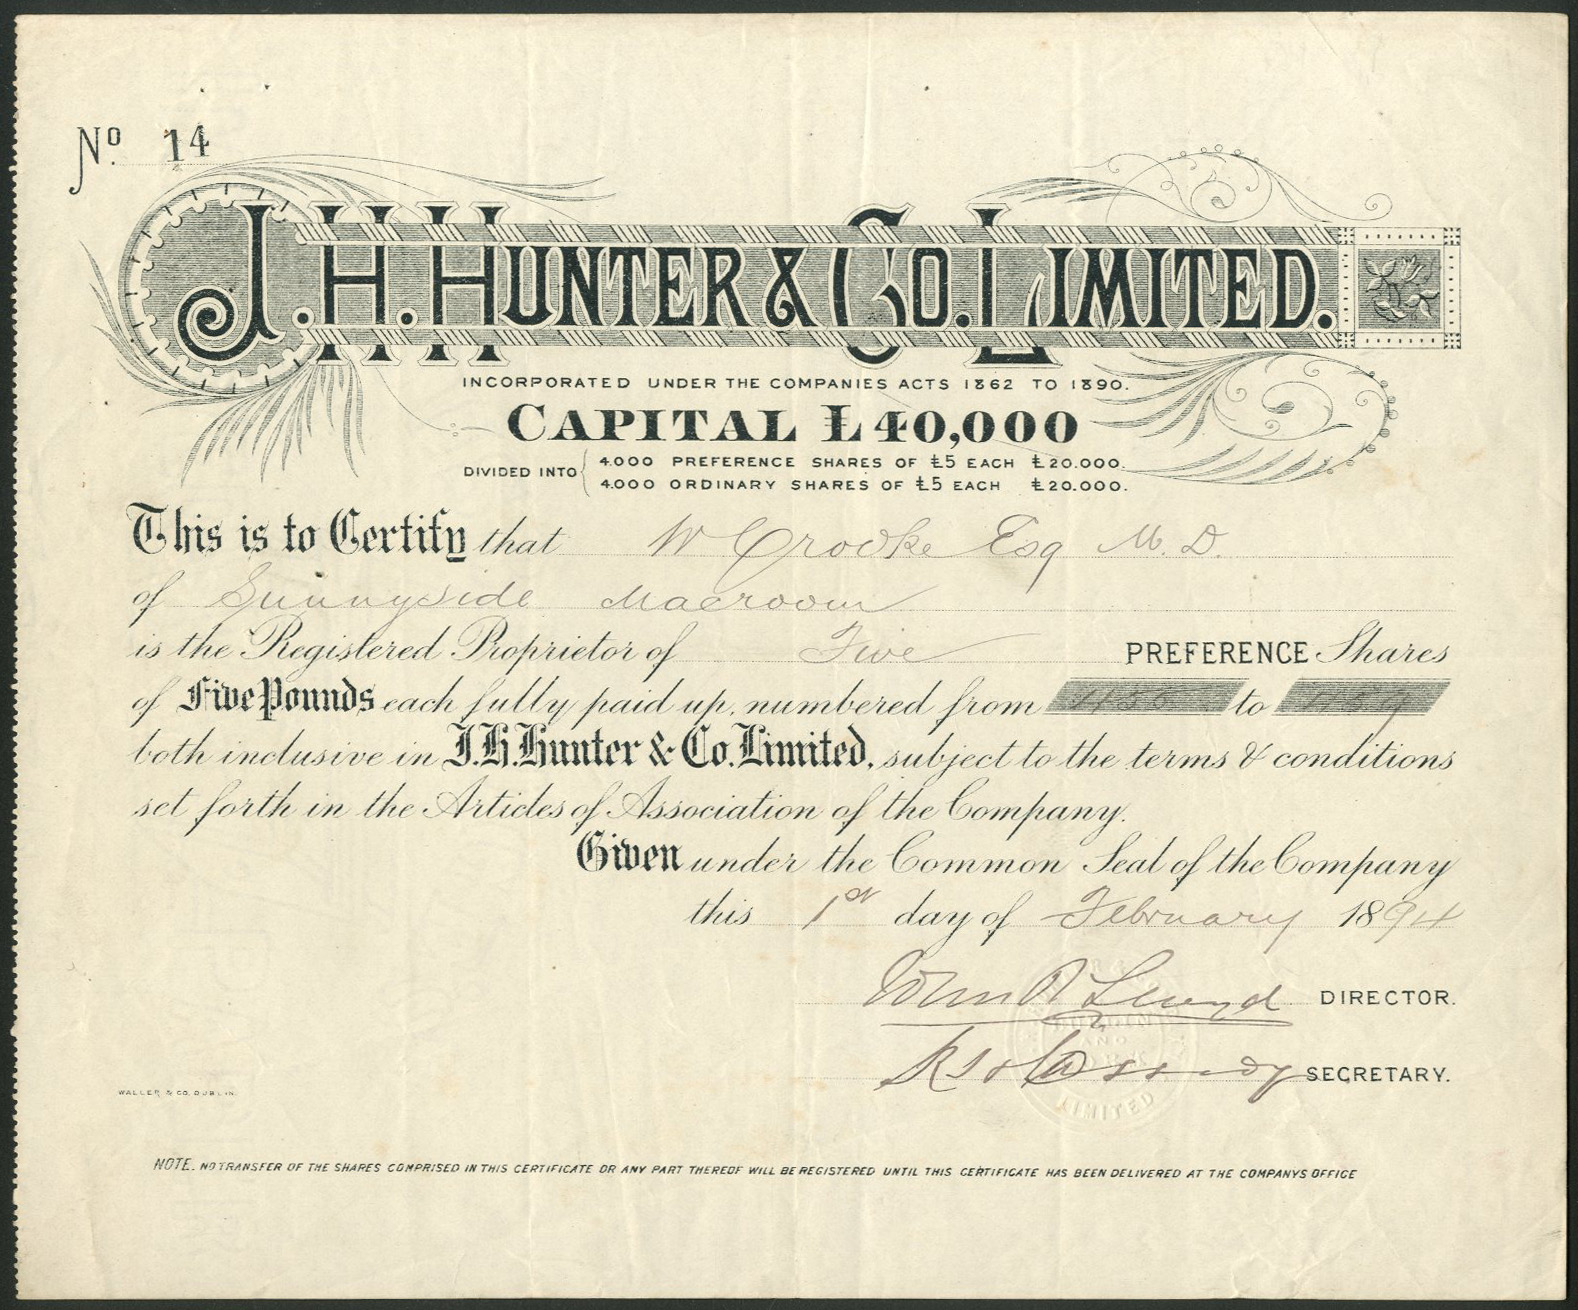 No. 14
J. H. HUNTER & CO. LIMITED.
INCORPORATED UNDER THE COMPANIES ACTS 1862 TO 1890.
CAPITAL £40,000
DIVIDED INTO { 4.000 PREFERENCE SHARES OF £5 EACH £20.000.
4.000 ORDINARY SHARES OF £5 EACH £20.000.
This is to Certify that W Crooke Esq M. D.
of Sunnyside Macroom
is the Registered Proprietor of Five PREFERENCE Shares
of Five Pounds each fully paid up, numbered from to
both inclusive in J. H. Hunter & Co. Limited, subject to the terms & conditions
set forth in the Articles of Association of the Company.
Given under the Common Seal of the Company
this 1st day of February 1894
John DIRECTOR.
SECRETARY.
LIMITED
WALLER & CO. DUBLIN.
NOTE. NO TRANSFER OF THE SHARES COMPRISED IN THIS CERTIFICATE OR ANY PART THEREOF WILL BE REGISTERED UNTIL THIS CERTIFICATE HAS BEEN DELIVERED AT THE COMPANYS OFFICE